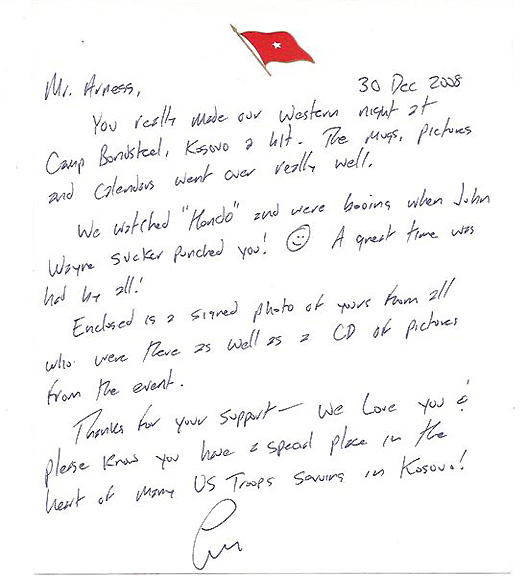 Mr. Arness,
30 Dec 2008
You really made our Western night at
Camp Bondsteel, Kosovo a hit. The mugs, pictures
and Calendars went over really well.
We watched "Hondo" and were booing when John
Wayne sucker punched you! ☺ A great time was
had by all!
Enclosed is a signed photo of yours from all
who were there as well as a CD of pictures
from the event.
Thanks for your support — We Love you &
please know you have a special place in the
heart of many US Troops serving in Kosovo!